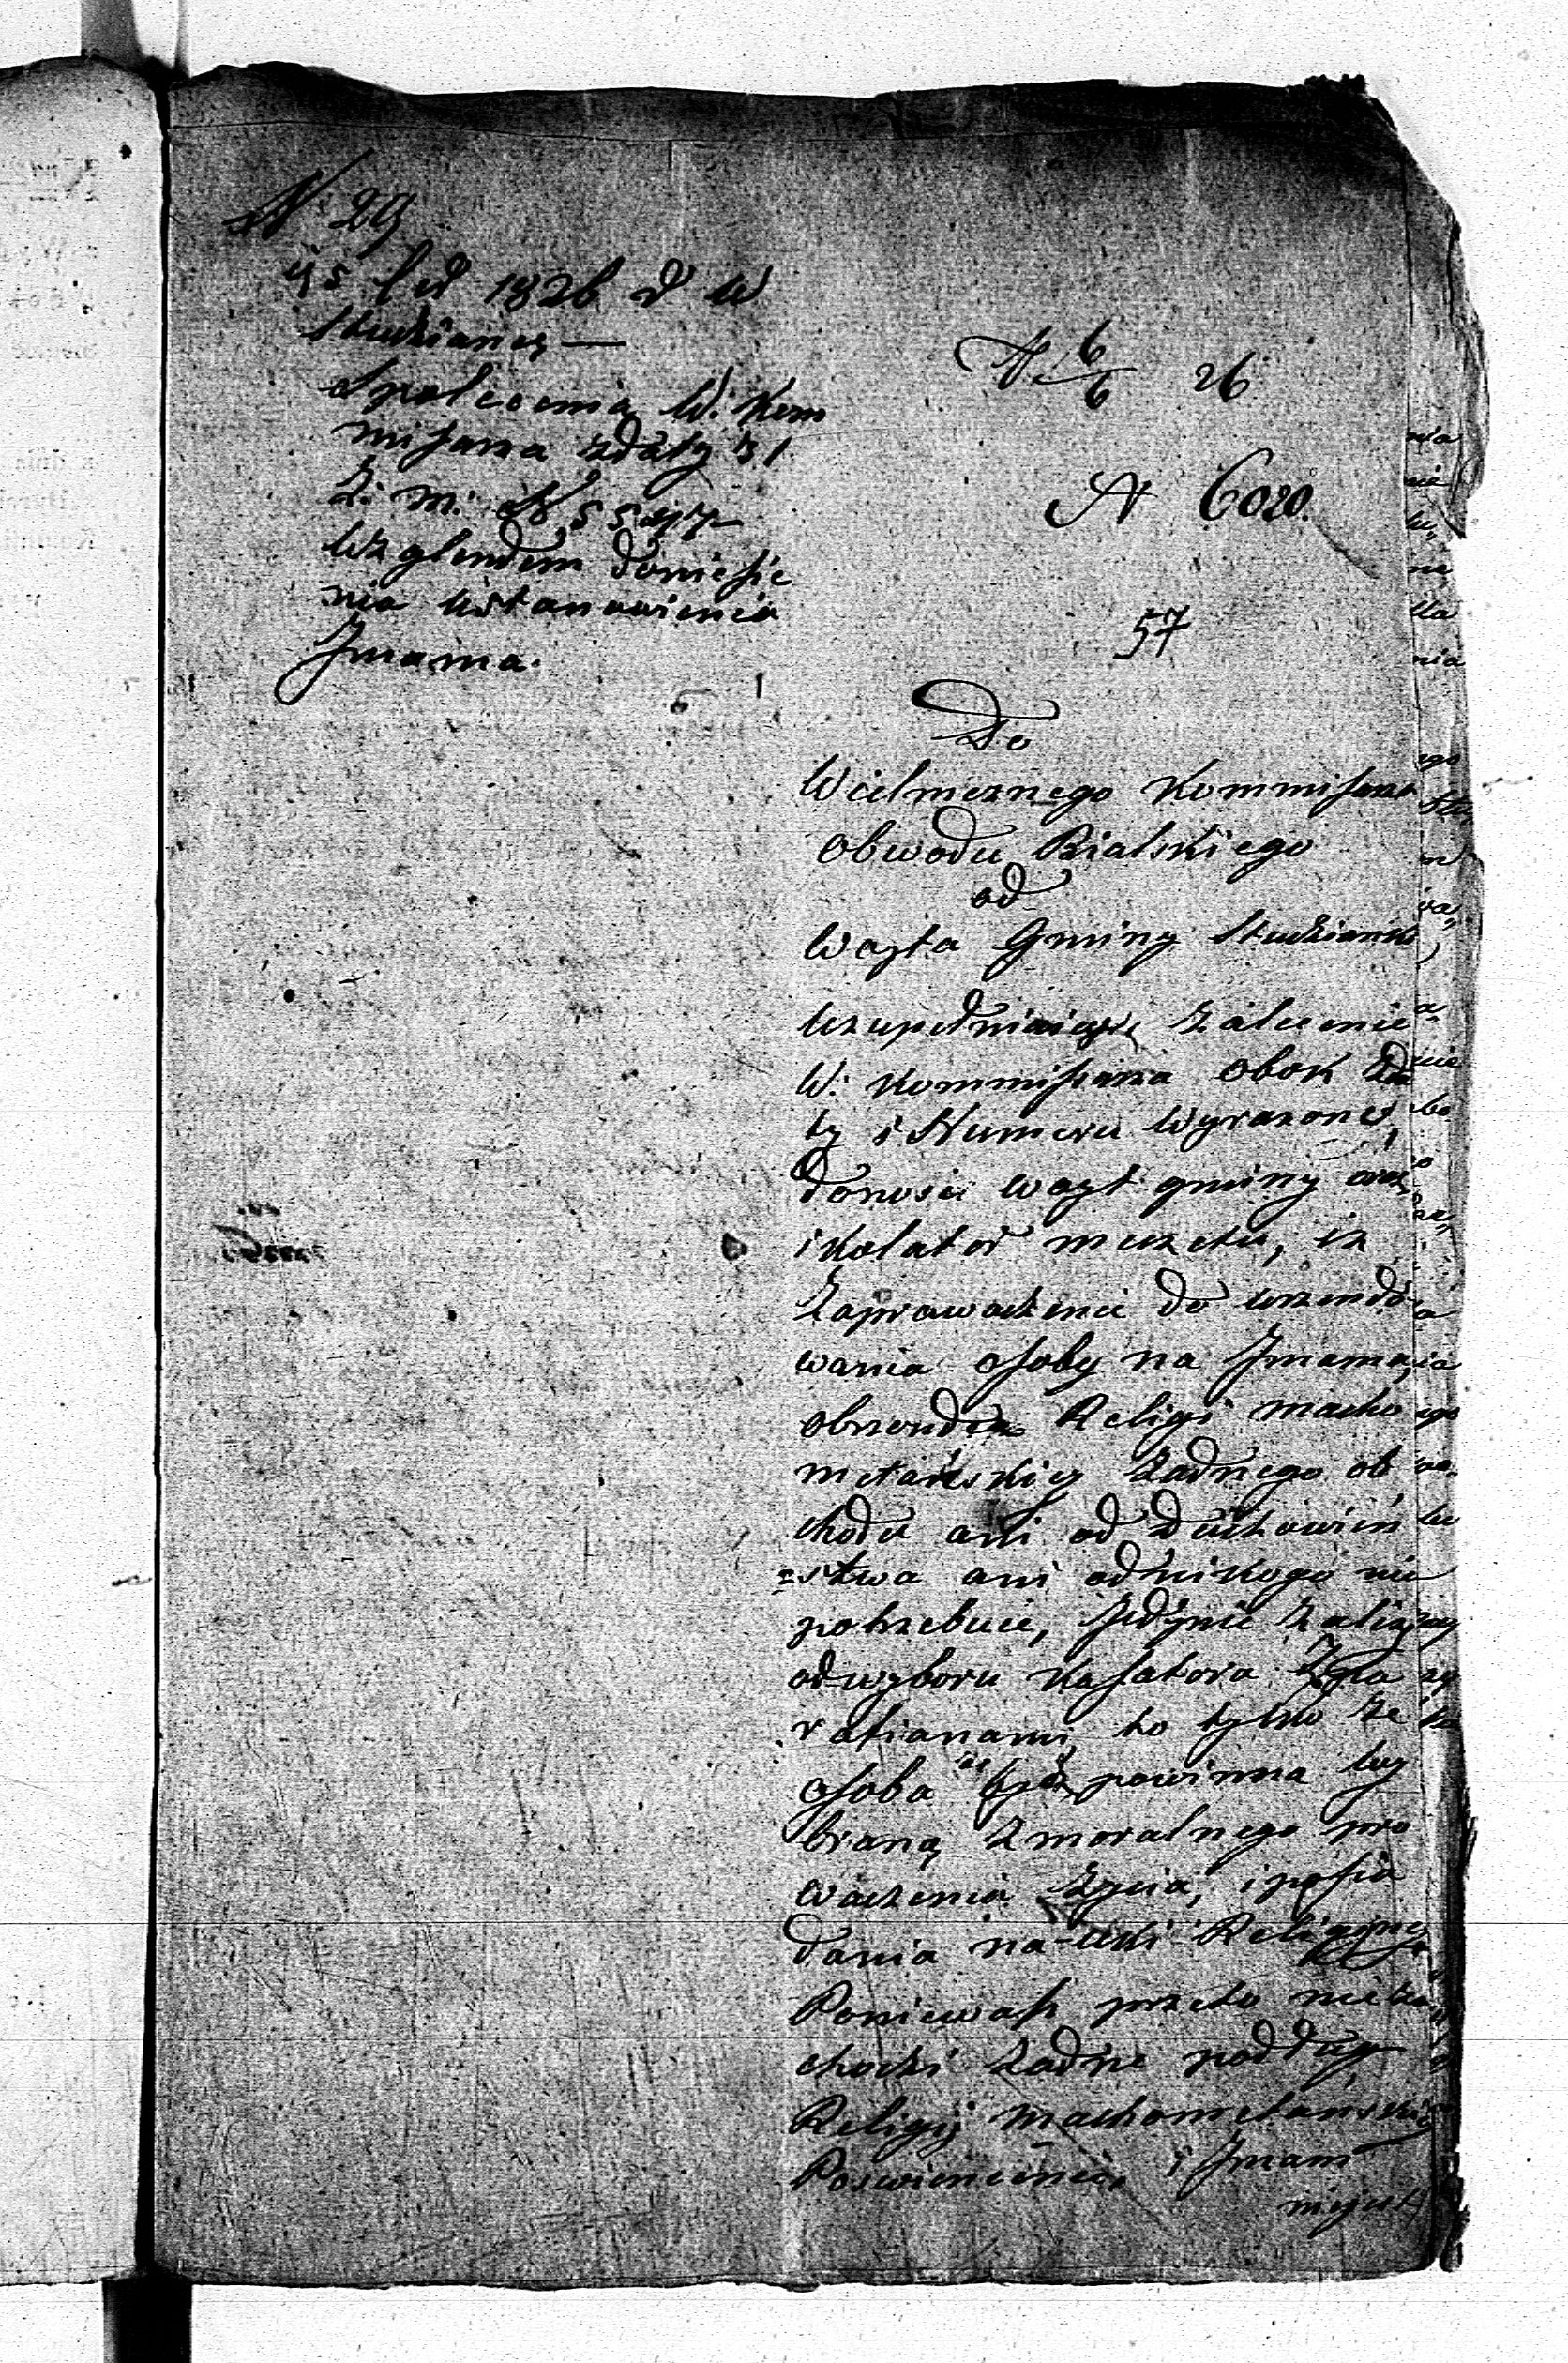 N 29
Studzianez —
Spolecenia W: Kom
misarza zdaty 31
Z: m: N 5547
Wzglendem doniesie
nia ustanowienia
Jmama.
N 6/6 26
N 6020.
57
Do
Wielmeznego Kommisarza
Obwodu Bialskiego
od
Wayta Gminy Studzianki
Uzupełniaiąc zalecenie
W: Kommisarza obok zda
ty i Numeru wyrazoney
donosii wayt gminy oraz
i Kolator meczetu, iz
Zaprowadzenie do urzendo
wania osoby na Jmama
obrzendem Religi macho
metańskiey żadnego ob
chodu ani od Duchowień
=stwa ani od nikogo nie
potrzebuie, jedynie zaliezy
od wyboru Kolatora z Pa
rafianami to tylko że
osoba ta powinna by
braną z moralnego pro
wadzenia życia, i posia
dania nauki Religijney
Poniewasz przeto nieza
chodzi żadne podług
Religij machometańskiey
Poswiencenie, i Jmam
niejest